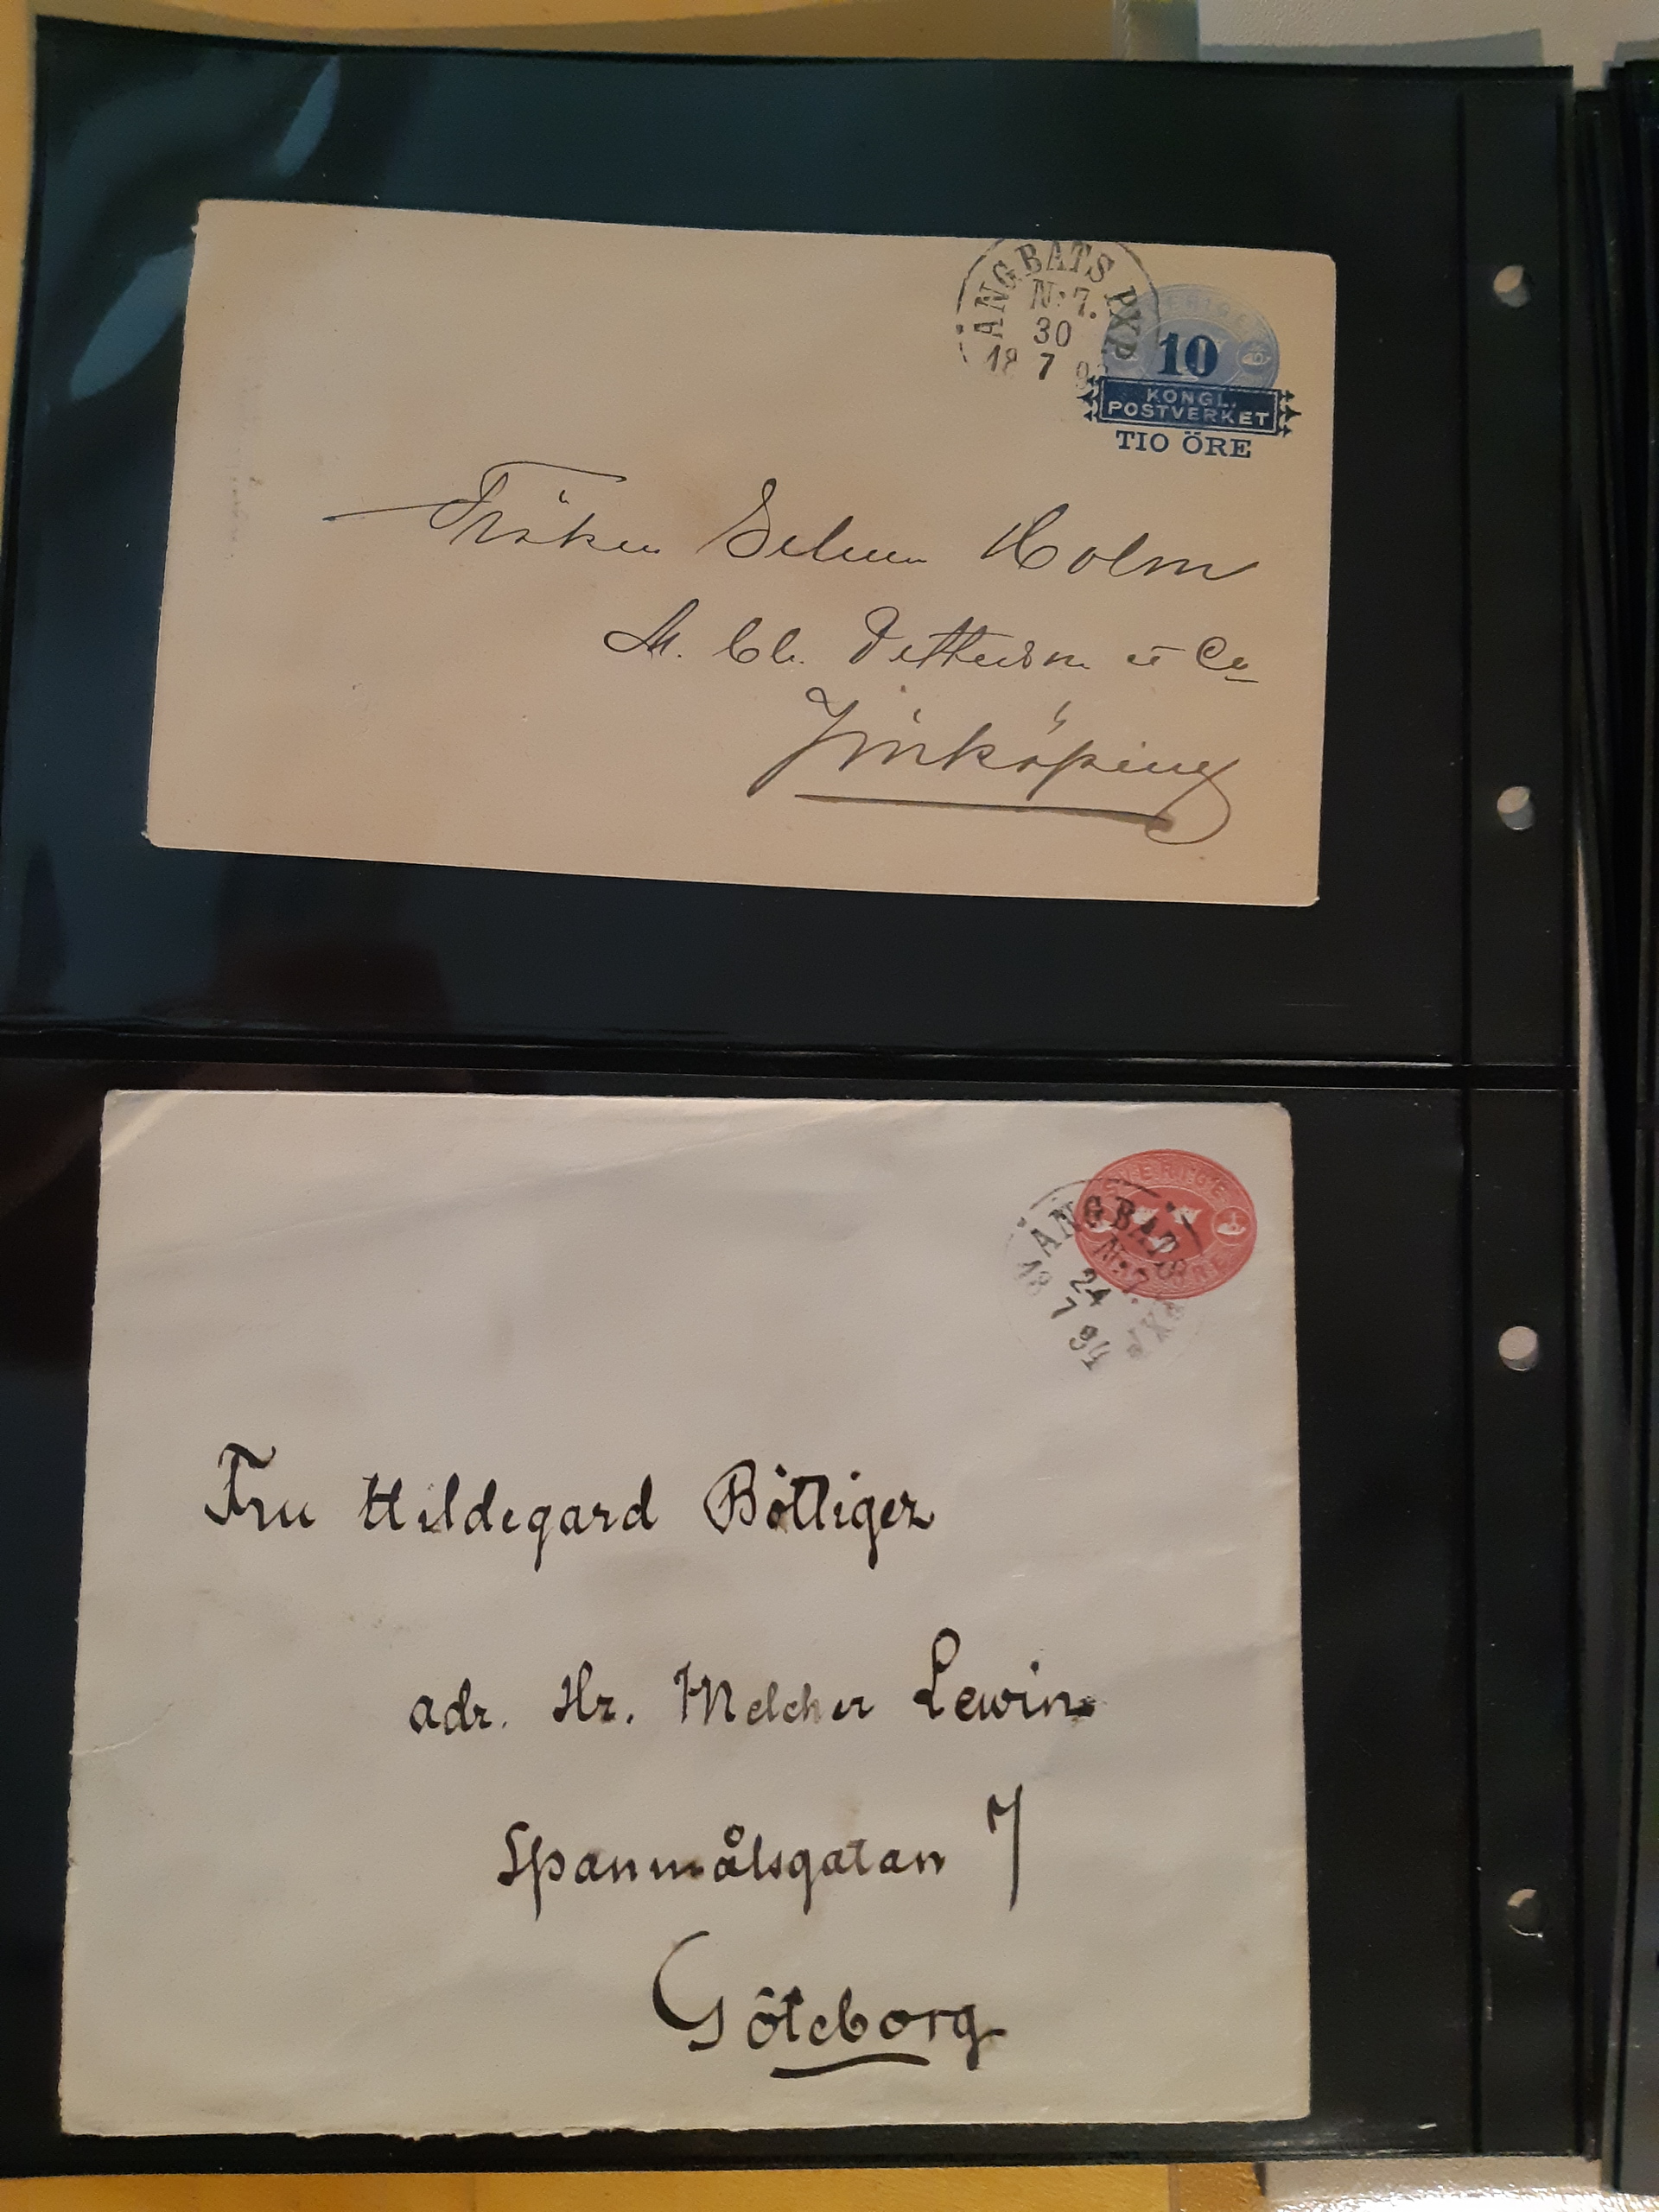 ÅNGBÅTS PXP
Nr 7.
30
18 7
SVERIGE
10
KONGL.
POSTVERKET
TIO ÖRE
Fröken Selma Holm
A. Ch. Petterson et Co
Jönköping
SVERIGE
ÅNGBÅTS PXP
Nr 7.
24
18 7 94
Fru Hildegard Böttiger
adr. Hr. Melcher Lewin
Spanmålsgatan 7
Göteborg